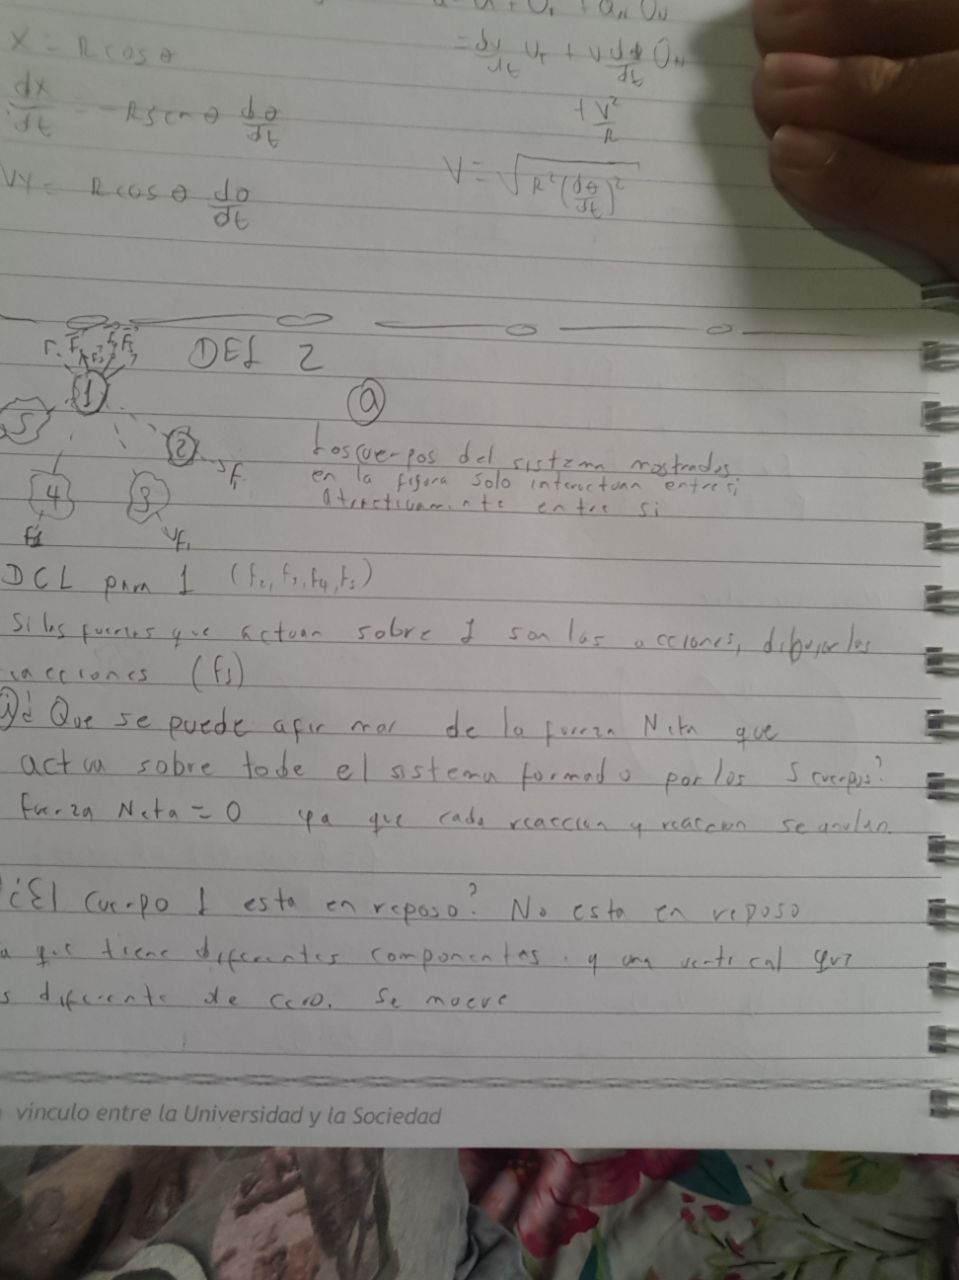 X = R cos θ
dx/dt = -R sen θ dθ/dt
VY = R cos θ dθ/dt
= dv/dt UT + v dφ/dt UN
+ V²/R
V = √R²(dθ/dt)²
DEL 2
a
1
2
3
4
5
F1
Los cuerpos del sistema mostrados
en la figura solo interactuan entre si
atractivamente entre si
DCL para 1 (F2, F3, F4, F5)
Si las fuerzas que actuan sobre 1 son las acciones, dibujar las
reacciones (F1)
¿Que se puede afirmar de la fuerza Neta que
actua sobre todo el sistema formado por los 5 cuerpos?
Fuerza Neta = 0 ya que cada reaccion y reaccion se anulan
¿El cuerpo 1 esta en reposo? No esta en reposo
ya que tiene diferentes componentes y una vertical que
es diferente de cero. Se mueve
vinculo entre la Universidad y la Sociedad